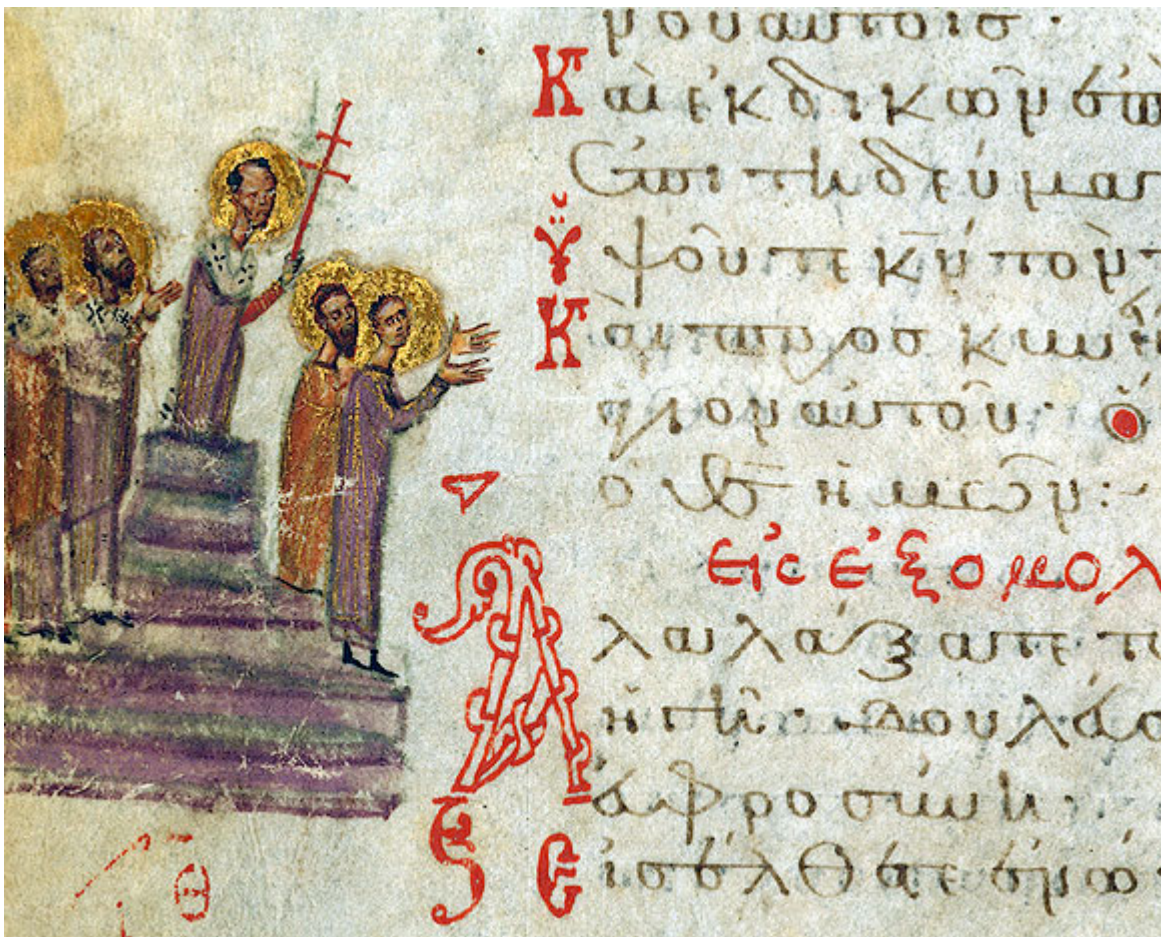 νου αὐτοῖς ·
Καὶ ἐκδικῶν ἐπ
ἐπιτηδεύματ
Ὑψοῦτε κ̅ν̅ τὸν
Καὶ προσκυνεῖ
ἅγιον αὐτοῦ · ὅ
ὁ θ̅ς̅ ἡμῶν :
εἰς ἐξομολ
Ἀλαλάξατε τ
ἡ γῆ · δουλεύσ
εὐφροσύνη ·
Εἰσέλθατε ἐνώ
Θ